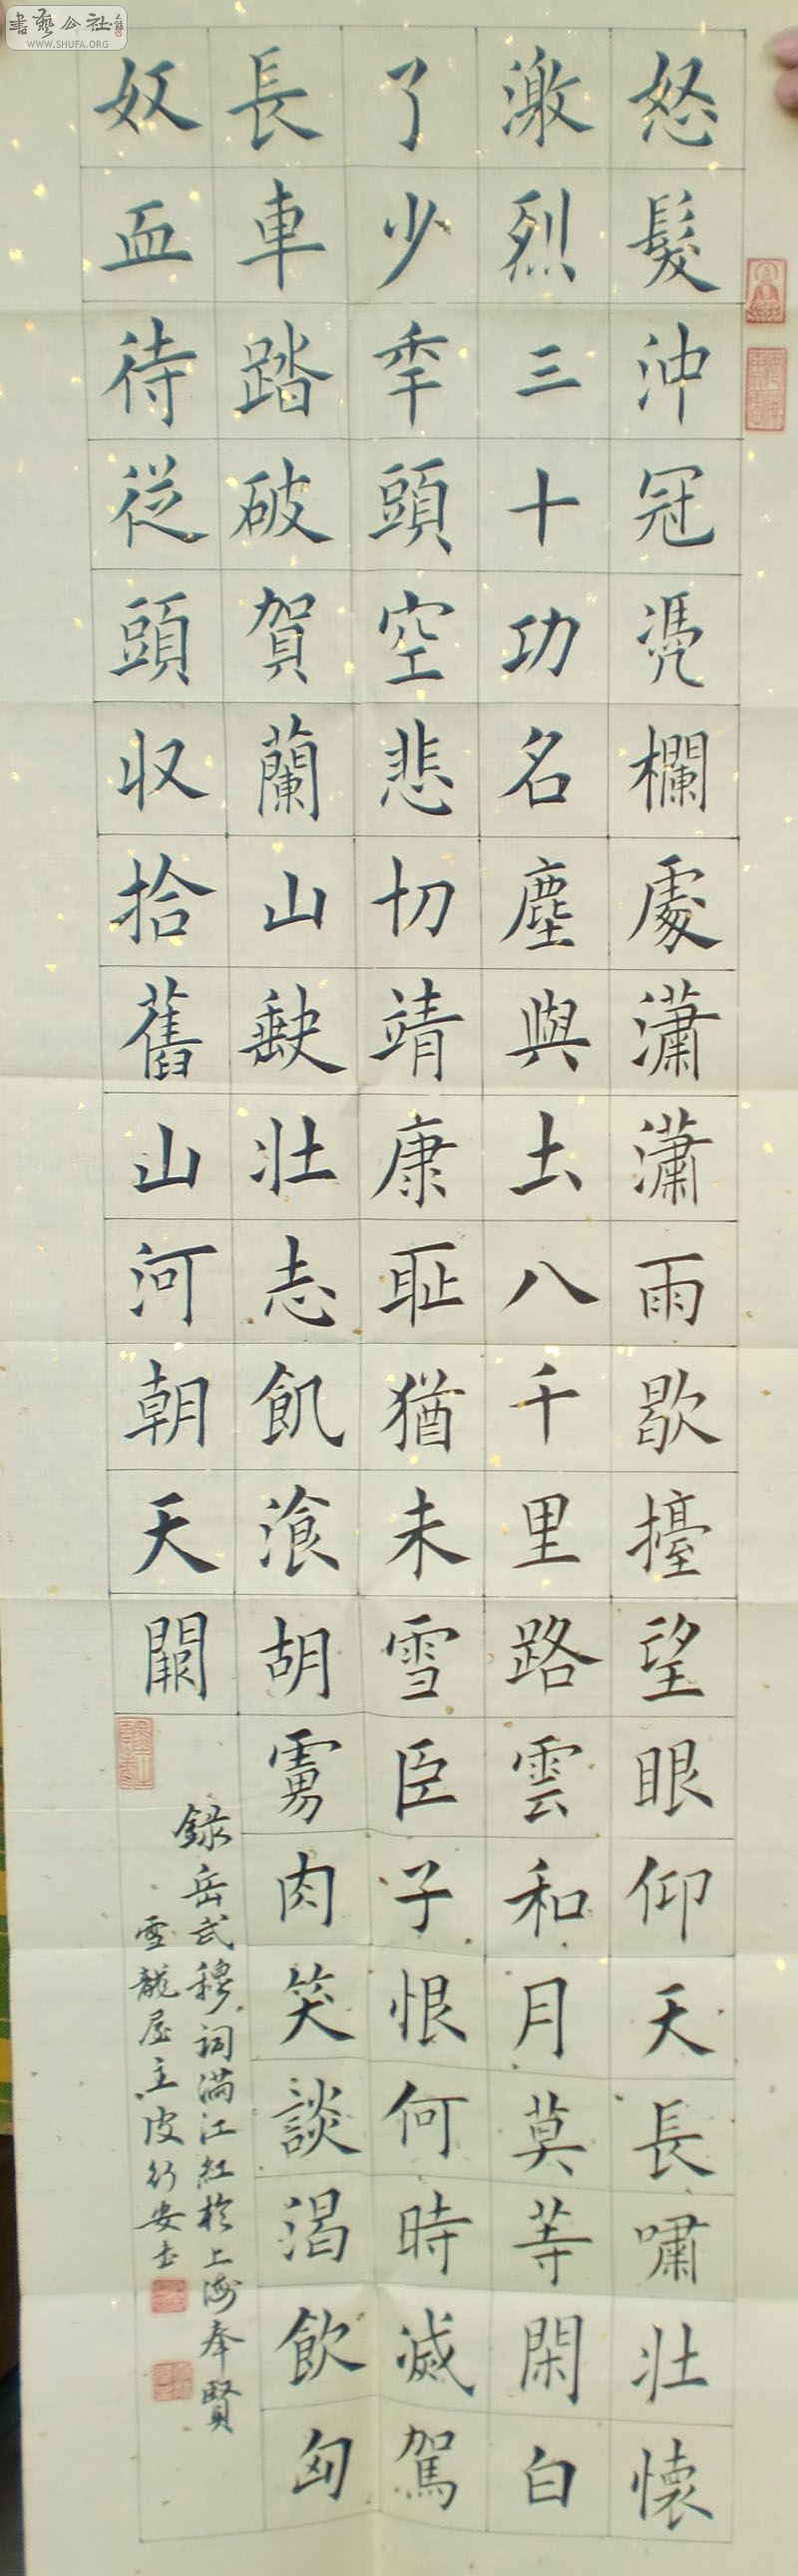 怒髮沖冠凴欄處瀟瀟雨歇擡望眼仰天長嘯壯懷
激烈三十功名塵與土八千里路雲和月莫等閑白
了少年頭空悲切靖康恥猶未雪臣子恨何時滅駕
長車踏破賀蘭山缺壯志飢飡胡虜肉笑談渴飲匈
奴血待從頭收拾舊山河朝天闕
錄岳武穆詞滿江紅於上海奉賢
雪龍屋主皮行安書
書藝公社
WWW.SHUFA.ORG